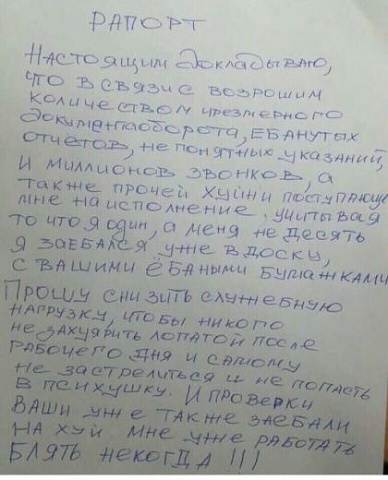 РАПОРТ
НАСТОЯЩИМ ДОКЛАДЫВАЮ,
ЧТО В СВЯЗИ С ВОЗРОШИМ
КОЛИЧЕСТВОМ ЧРЕЗМЕРНОГО
ДОКУМЕНТООБОРОТА, ЕБАНУТЫХ
ОТЧЁТОВ, НЕПОНЯТНЫХ УКАЗАНИЙ,
И МИЛЛИОНОВ ЗВОНКОВ, А
ТАКЖЕ ПРОЧЕЙ ХУЙНИ ПОСТУПАЮЩЕ
МНЕ НА ИСПОЛНЕНИЕ. УЧИТЫВАЯ
ТО ЧТО Я ОДИН, А МЕНЯ НЕ ДЕСЯТЬ
Я ЗАЕБАЛСЯ УЖЕ В ДОСКУ,
С ВАШИМИ ЁБАНЫМИ БУМАЖКАМИ
ПРОШУ СНИЗИТЬ СЛУЖЕБНУЮ
НАГРУЗКУ, ЧТОБЫ НИКОГО
НЕ ЗАХУЯРИТЬ ЛОПАТОЙ ПОСЛЕ
РАБОЧЕГО ДНЯ И САМОМУ
НЕ ЗАСТРЕЛИТЬСЯ И НЕ ПОПАСТЬ
В ПСИХУШКУ. И ПРОВЕРКИ
ВАШИ УЖЕ ТАКЖЕ ЗАЕБАЛИ
НА ХУЙ. МНЕ УЖЕ РАБОТАТЬ
БЛЯТЬ НЕКОГДА!!!